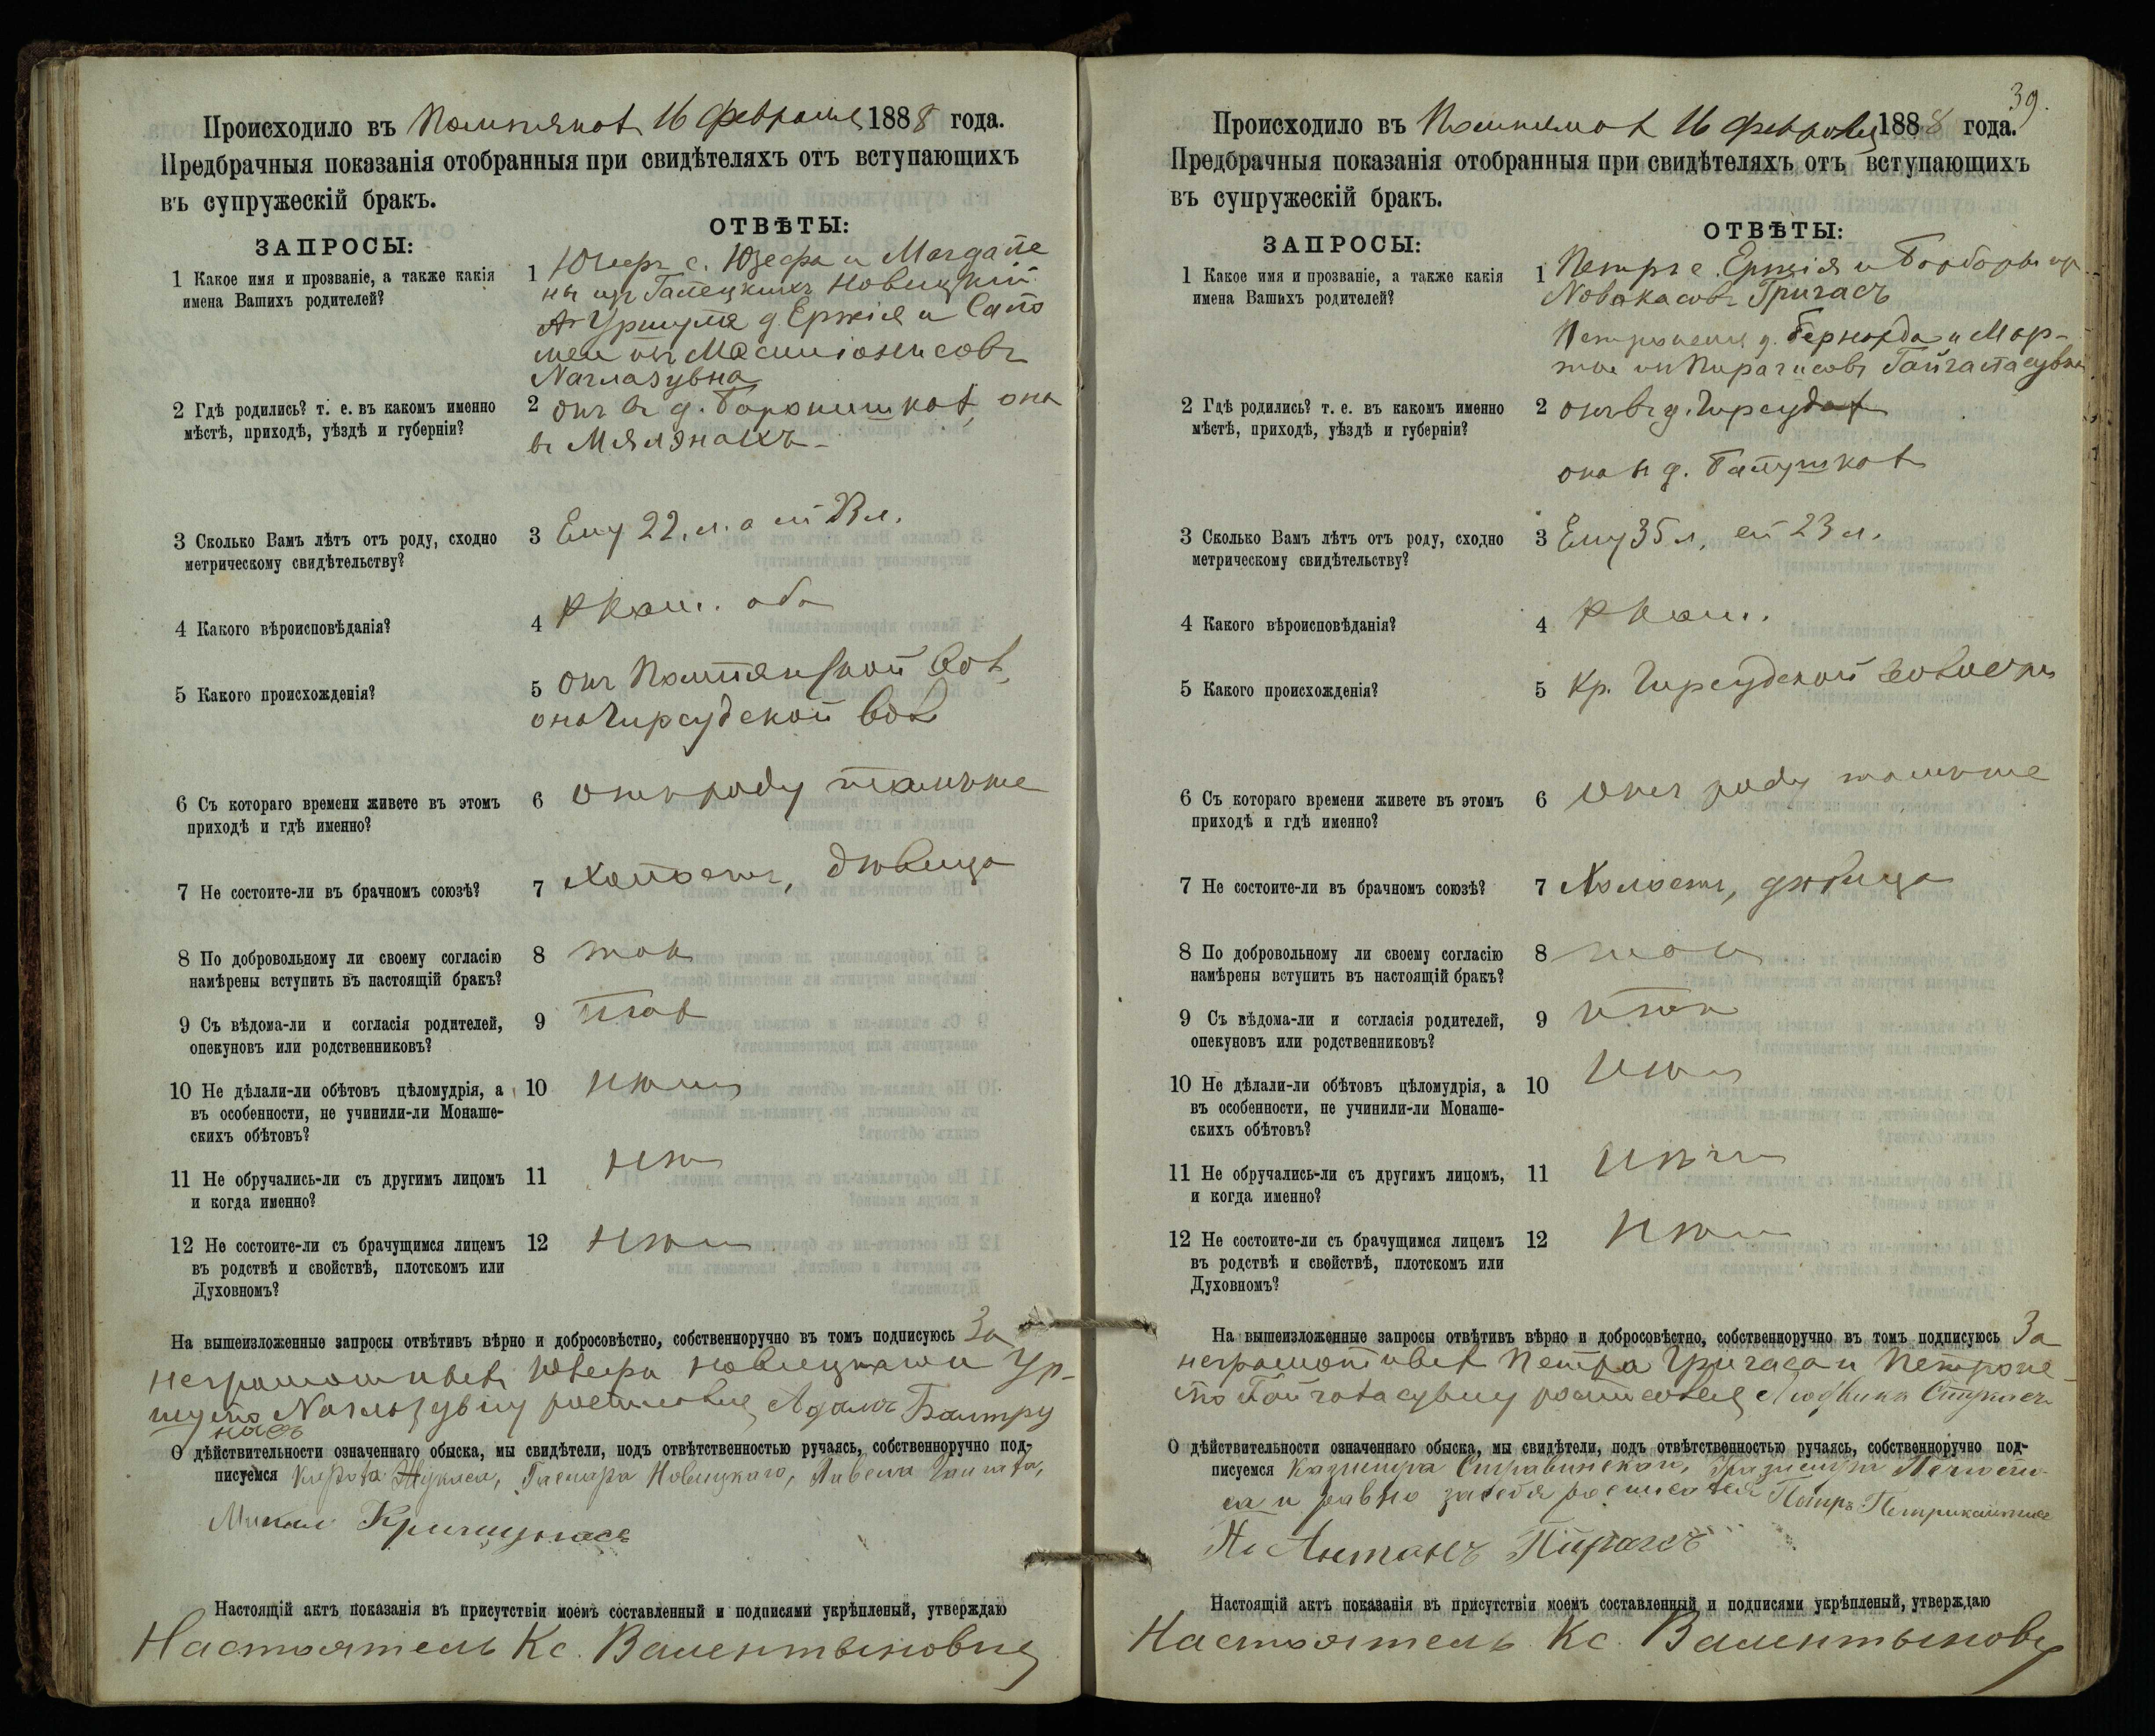 Происходило въ 16 февраля 1888 года.
Предбрачныя показанія отобранныя при свидѣтеляхъ отъ вступающихъ
въ супружескій бракъ.
ЗАПРОСЫ:
ОТВѢТЫ:
1 Какое имя и прозваніе, а также какія
имена Вашихъ родителей?
1 Юзефъ с. Юзефа и
Новицкій
Уршуля д Ержія и
2 Гдѣ родились? т. е. въ какомъ именно
мѣстѣ, приходѣ, уѣздѣ и губерніи?
2 онъ въ д. она
въ
3 Сколько Вамъ лѣтъ отъ роду, сходно
метрическому свидѣтельству?
3 Ему 22. л. а ей
4 Какого вѣроисповѣданія?
4 Р Кат. оба
5 Какого происхожденія?
5 онъ вол.
она Чирсудской вол
6 Съ котораго времени живете въ этомъ
приходѣ и гдѣ именно?
6 отъ роду тамъже
7 Не состоите-ли въ брачномъ союзѣ?
7 Холостъ, дѣвица
8 По добровольному ли своему согласію
намѣрены вступить въ настоящій бракъ?
8 так
9 Съ вѣдома-ли и согласія родителей,
опекуновъ или родственниковъ?
9 так
10 Не дѣлали-ли обѣтовъ цѣломудрія, а
въ особенности, не учинили-ли Монаше-
скихъ обѣтовъ?
10 нѣт
11 Не обручались-ли съ другимъ лицомъ
и когда именно?
11 нѣт
12 Не состоите-ли съ брачущимся лицемъ
въ родствѣ и свойствѣ, плотскомъ или
Духовномъ?
12 нѣт
На вышеизложенные запросы отвѣтивъ вѣрно и добросовѣстно, собственноручно въ томъ подписуюсь За
неграмотных Юзефа Новицкаго и Ур-
шулю Адамъ Балтру
насъ
О дѣйствительности означеннаго обыска, мы свидѣтели, подъ отвѣтственностью ручаясь, собственноручно под-
писуемся Новицкаго,
Настоящій актъ показанія въ присутствіи моемъ составленный и подписями укрѣпленый, утверждаю
Настоятель Кс. Валентыновичъ
39.
Происходило въ 16 февраля 1888 года.
Предбрачныя показанія отобранныя при свидѣтеляхъ отъ вступающихъ
въ супружескій бракъ.
ЗАПРОСЫ:
ОТВѢТЫ:
1 Какое имя и прозваніе, а также какія
имена Вашихъ родителей?
1 Петръ с. Ержія и Барбары
Григасъ
д. Бернарда и Мар-
2 Гдѣ родились? т. е. въ какомъ именно
мѣстѣ, приходѣ, уѣздѣ и губерніи?
2 онъ въ д. Чирсудах
она в д.
3 Сколько Вамъ лѣтъ отъ роду, сходно
метрическому свидѣтельству?
3 Ему 35 л, ей 23 л.
4 Какого вѣроисповѣданія?
4 Р Кат.
5 Какого происхожденія?
5 Кр. Чирсудской волости
6 Съ котораго времени живете въ этомъ
приходѣ и гдѣ именно?
6 отъ роду тамъже
7 Не состоите-ли въ брачномъ союзѣ?
7 Холостъ, дѣвица
8 По добровольному ли своему согласію
намѣрены вступить въ настоящій бракъ?
8 так
9 Съ вѣдома-ли и согласія родителей,
опекуновъ или родственниковъ?
9 так
10 Не дѣлали-ли обѣтовъ цѣломудрія, а
въ особенности, не учинили-ли Монаше-
скихъ обѣтовъ?
10 нѣт
11 Не обручались-ли съ другимъ лицомъ,
и когда именно?
11 нѣт
12 Не состоите-ли съ брачущимся лицемъ
въ родствѣ и свойствѣ, плотскомъ или
Духовномъ?
12 нѣт
На вышеизложенные запросы отвѣтивъ вѣрно и добросовѣстно, собственноручно въ томъ подписуюсь За
неграмотных Петра Григаса и Петроне-
лю
О дѣйствительности означеннаго обыска, мы свидѣтели, подъ отвѣтственностью ручаясь, собственноручно под-
писуемся Казимира
и равно за себя
Антанъ Пирагсъ
Настоящій актъ показанія въ присутствіи моемъ составленный и подписями укрѣпленый, утверждаю
Настоятель Кс. Валентыновичъ